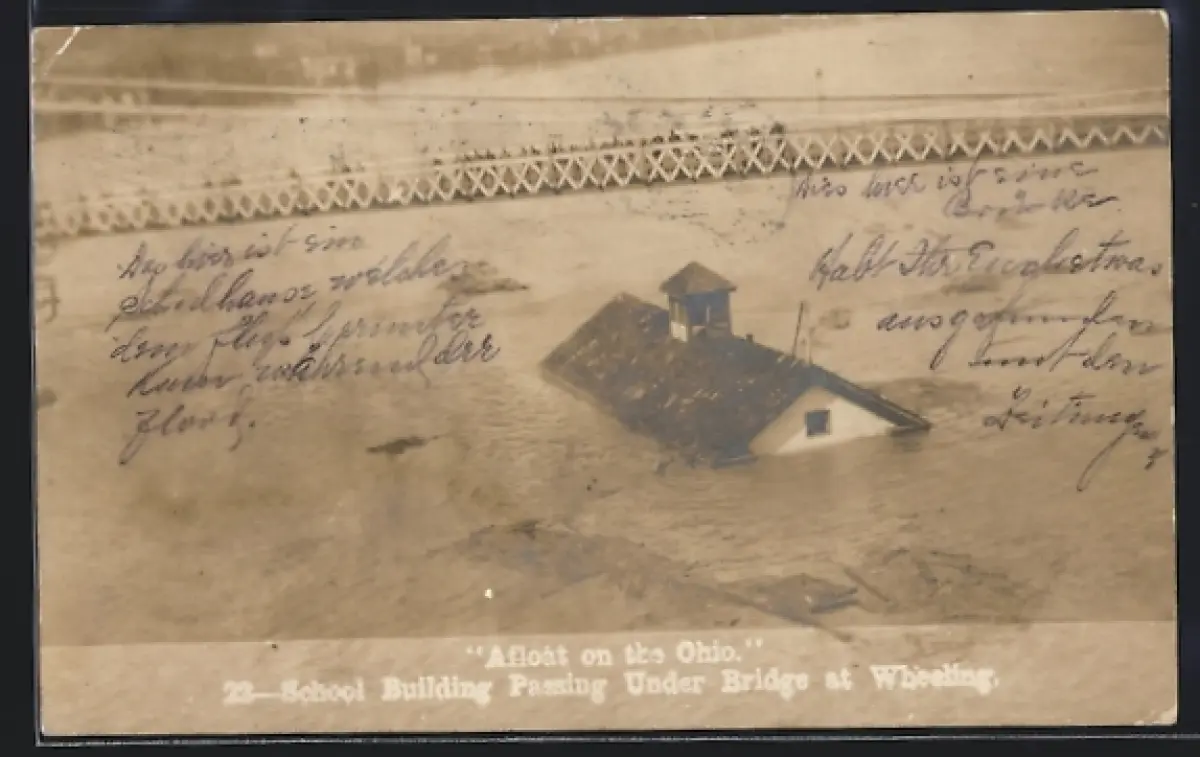 Dies hier ist eine
Brücke
Das hier ist ein
Schulhause welches
dem Fluss herunter
kam während der
Flood.
Habt Ihr Euch etwas
ausgefunden
mit den
Zeitungen
"Afloat on the Ohio."
22—School Building Passing Under Bridge at Wheeling.